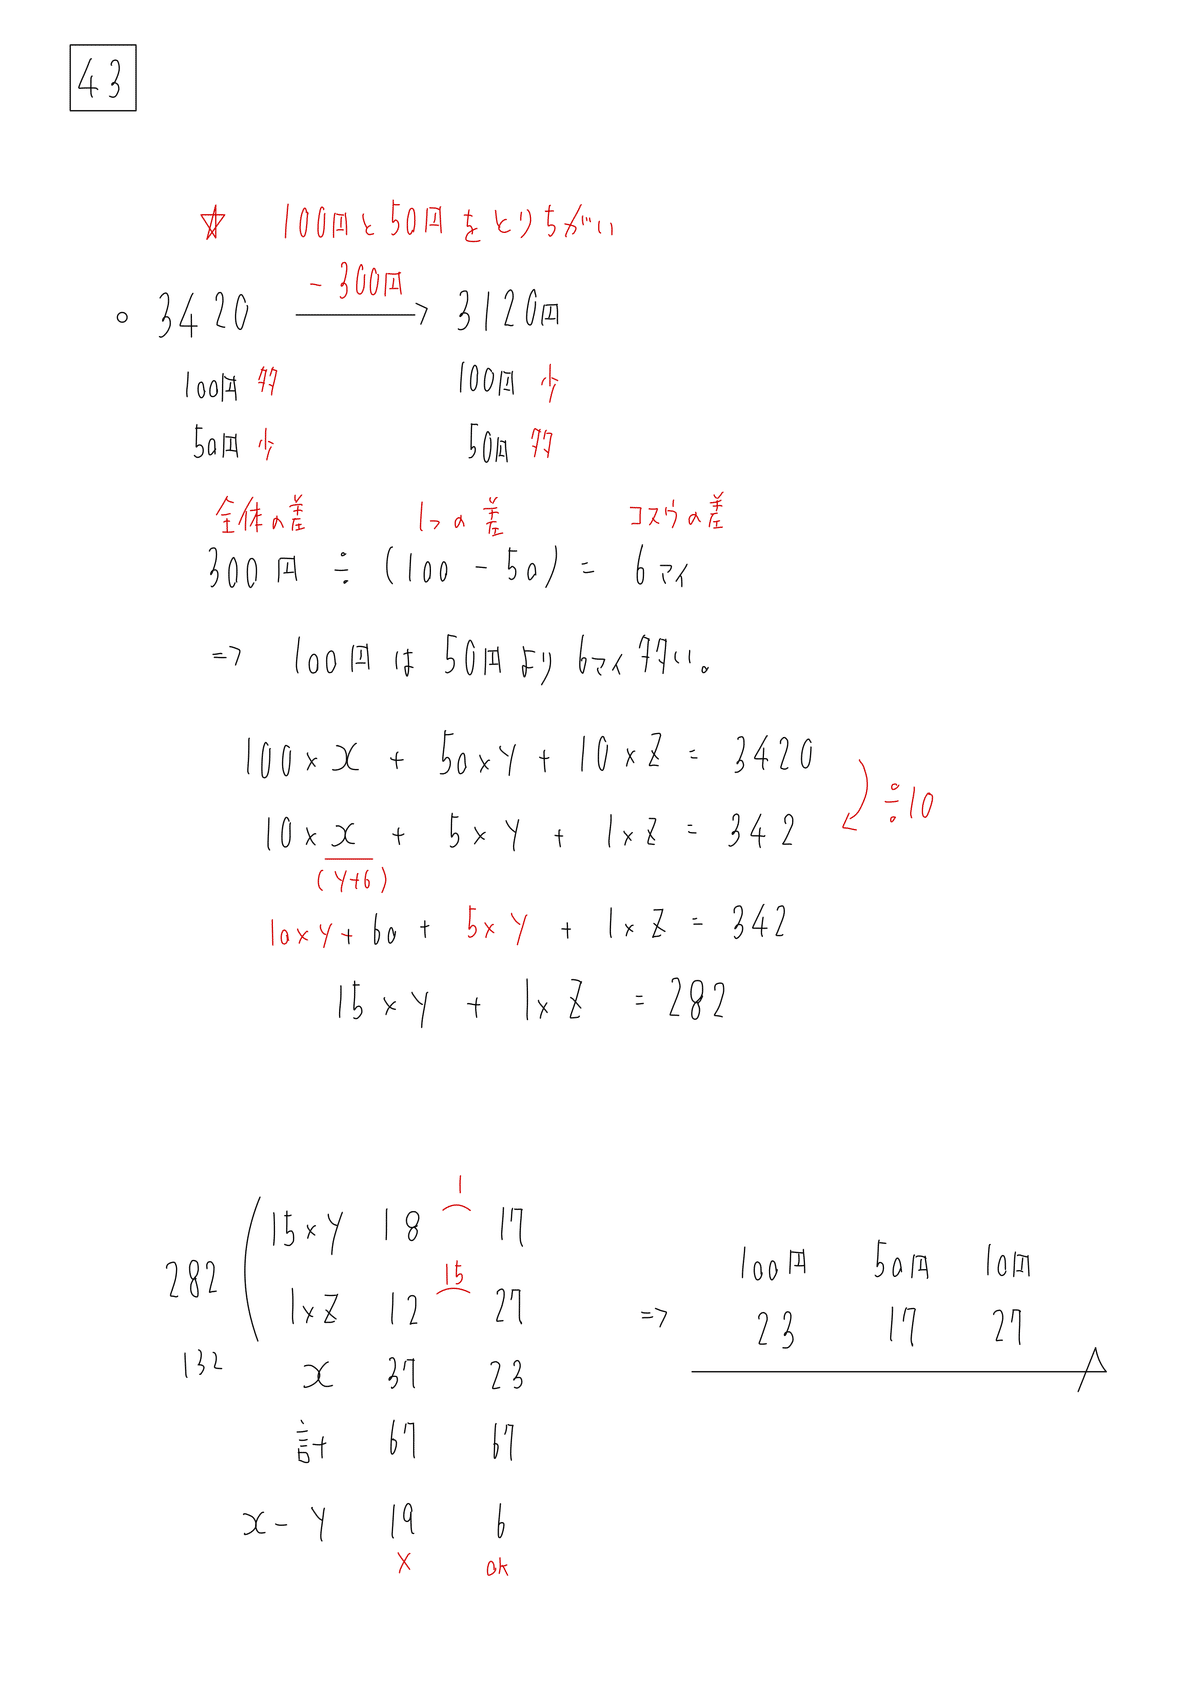 43
☆ 100円と50円をとりちがい
- 300円
○ 3420 → 3120円
100円 多 100円 少
50円 少 50円 多
全体の差 1つの差 コスウの差
300円 ÷ (100 - 50) = 6マイ
=> 100円は50円より6マイ多い。
100×x + 50×y + 10×z = 3420
÷10
10×x + 5×y + 1×z = 342
(y+6)
10×y + 60 + 5×y + 1×z = 342
15×y + 1×z = 282
1
15×y 18 17
282
15
1×z 12 27
132
x 37 23
計 67 67
x - y 19 6
× ok
100円 50円 10円
=> 23 17 27